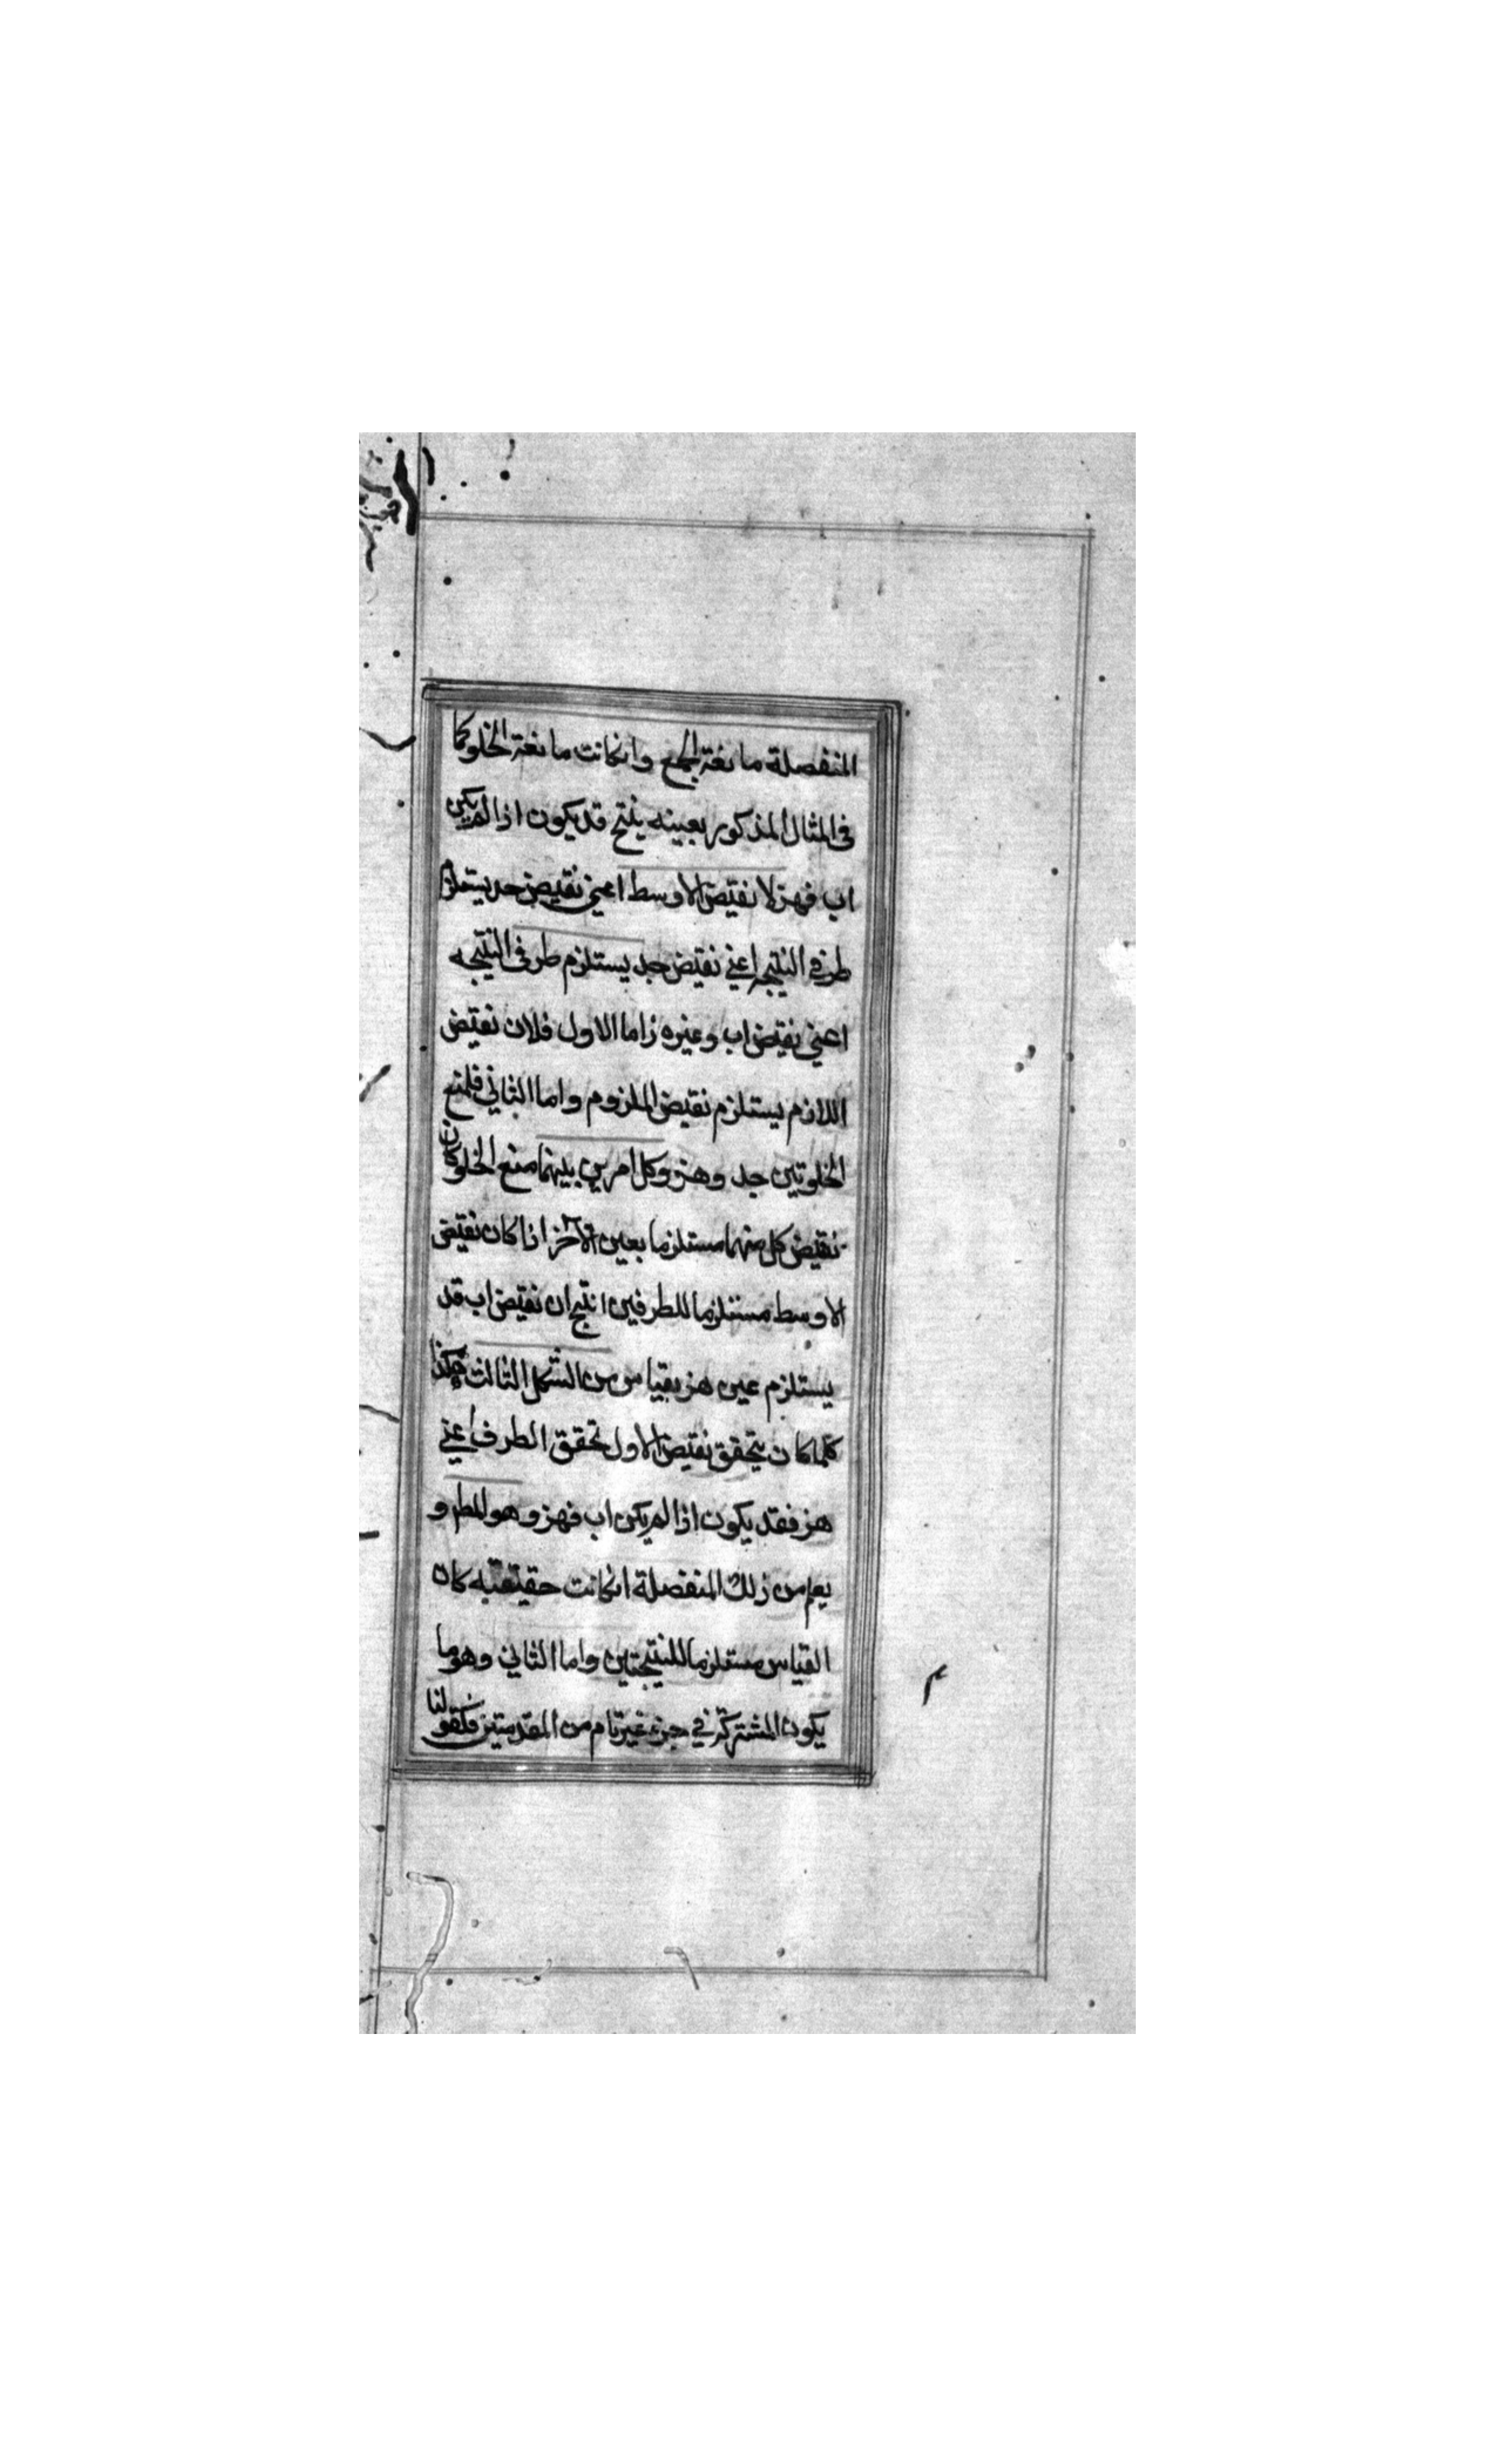 المنفصلة مانعة الجمع وانكانت مانعة الخلو كما
فى المثال المذكور بعينه ينتج قد يكون اذا لم يكن
اب فهز لا نقيض الاوسط اعنى نقيض جد يستلزم
طرفى النتيجه اعنى نقيض جد يستلزم طرفى النتيجه
اعنى نقيض اب وعين ه ز اما الاول فلان نقيض
اللازم يستلزم نقيض الملزوم واما الثانى فلمنع
الخلو بين جد وهز وكل امرين بينهما منع الخلو كان
نقيض كل منهما مستلزما بعين الآخر اذا كان نقيض
الاوسط مستلزما للطرفين انتج ان نقيض اب قد
يستلزم عين هز بقياس من الشكل الثالث هكذا
كلما كان يتحقق نقيض الاول تحقق الطرف اعنى
هز فقد يكون اذا لم يكن اب فهز وهو المط و
يعلم من ذلك المنفصلة انكانت حقيقيه كان
القياس مستلزما للنتيجتين واما الثانى وهو ما
يكون المشترك فى جزء غير تام من المقدمتين فكقولنا